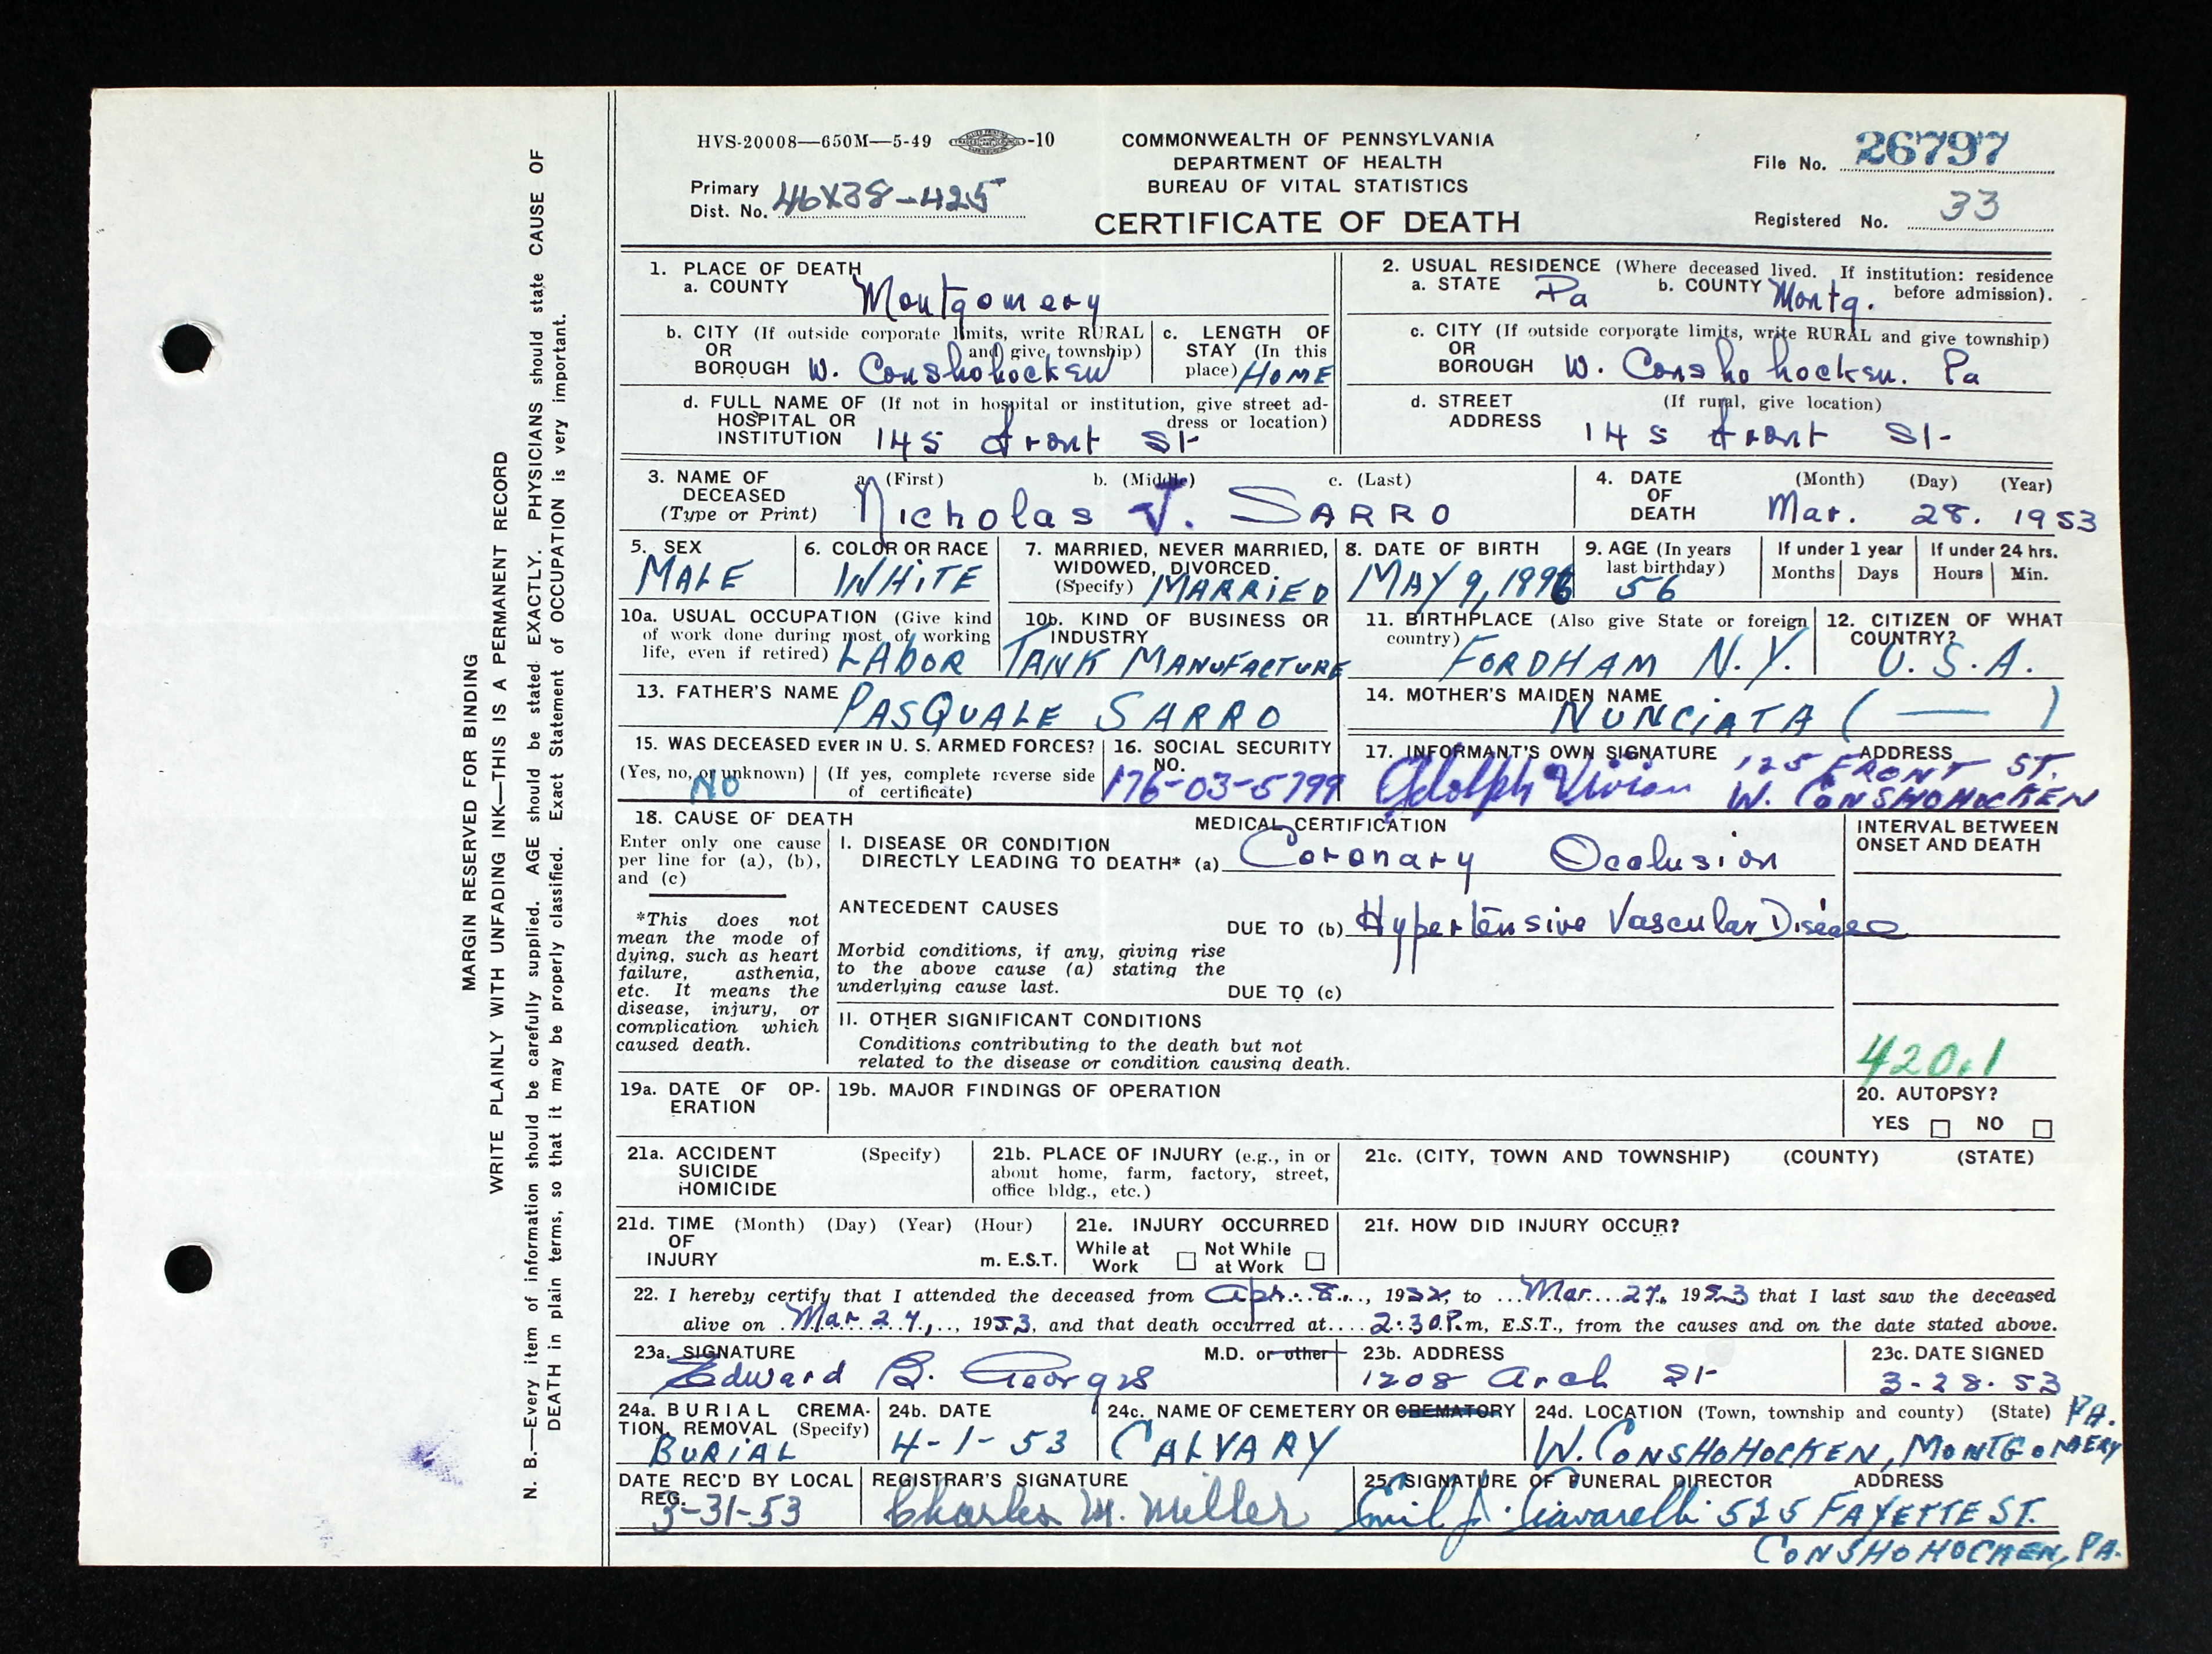 HVS-20008—650M—5-49 -10
COMMONWEALTH OF PENNSYLVANIA
DEPARTMENT OF HEALTH
BUREAU OF VITAL STATISTICS
CERTIFICATE OF DEATH
File No. 26797
Primary Dist. No. 46X38-425
Registered No. 33
1. PLACE OF DEATH
a. COUNTY Montgomery
b. CITY (If outside corporate limits, write RURAL
OR and give township)
BOROUGH W. Conshohocken
c. LENGTH OF
STAY (In this
place) HOME
d. FULL NAME OF (If not in hospital or institution, give street ad-
HOSPITAL OR dress or location)
INSTITUTION 145 Front St-
2. USUAL RESIDENCE (Where deceased lived. If institution: residence
before admission).
a. STATE Pa b. COUNTY Montg.
c. CITY (If outside corporate limits, write RURAL and give township)
OR
BOROUGH W. Conshohocken. Pa
d. STREET (If rural, give location)
ADDRESS 145 Front St-
3. NAME OF a. (First) b. (Middle) c. (Last)
DECEASED
(Type or Print) Nicholas J. SARRO
4. DATE (Month) (Day) (Year)
OF
DEATH Mar. 28. 1953
5. SEX
MALE
6. COLOR OR RACE
WHITE
7. MARRIED, NEVER MARRIED,
WIDOWED, DIVORCED
(Specify) MARRIED
8. DATE OF BIRTH
MAY 9, 1896
9. AGE (In years
last birthday)
56
If under 1 year
Months Days
If under 24 hrs.
Hours Min.
10a. USUAL OCCUPATION (Give kind
of work done during most of working
life, even if retired) LABOR
10b. KIND OF BUSINESS OR
INDUSTRY
TANK MANUFACTURE
11. BIRTHPLACE (Also give State or foreign
country) FORDHAM N.Y.
12. CITIZEN OF WHAT
COUNTRY?
U.S.A.
13. FATHER'S NAME PASQUALE SARRO
14. MOTHER'S MAIDEN NAME
NUNCIATA ( — )
15. WAS DECEASED EVER IN U. S. ARMED FORCES?
(Yes, no, or unknown) (If yes, complete reverse side
NO of certificate)
16. SOCIAL SECURITY
NO.
176-03-5799
17. INFORMANT'S OWN SIGNATURE ADDRESS
Adolph Vivian 125 FRONT ST.
W. CONSHOHOCKEN
18. CAUSE OF DEATH
Enter only one cause
per line for (a), (b),
and (c)
*This does not
mean the mode of
dying, such as heart
failure, asthenia,
etc. It means the
disease, injury, or
complication which
caused death.
MEDICAL CERTIFICATION
I. DISEASE OR CONDITION
DIRECTLY LEADING TO DEATH* (a) Coronary Occlusion
ANTECEDENT CAUSES
DUE TO (b) Hypertensive Vascular Disease
Morbid conditions, if any, giving rise
to the above cause (a) stating the
underlying cause last.
DUE TO (c)
II. OTHER SIGNIFICANT CONDITIONS
Conditions contributing to the death but not
related to the disease or condition causing death.
INTERVAL BETWEEN
ONSET AND DEATH
420.1
19a. DATE OF OP-
ERATION
19b. MAJOR FINDINGS OF OPERATION
20. AUTOPSY?
YES NO
21a. ACCIDENT (Specify)
SUICIDE
HOMICIDE
21b. PLACE OF INJURY (e.g., in or
about home, farm, factory, street,
office bldg., etc.)
21c. (CITY, TOWN AND TOWNSHIP) (COUNTY) (STATE)
21d. TIME (Month) (Day) (Year) (Hour)
OF
INJURY m. E.S.T.
21e. INJURY OCCURRED
While at Work Not While at Work
21f. HOW DID INJURY OCCUR?
22. I hereby certify that I attended the deceased from Apr. 8., 1952, to Mar. 27, 1953 that I last saw the deceased
alive on Mar 27, 1953, and that death occurred at 2:30 P.m, E.S.T., from the causes and on the date stated above.
23a. SIGNATURE M.D. or other
Edward B. Georges
23b. ADDRESS
1208 Arch St-
23c. DATE SIGNED
3-28-53
24a. BURIAL CREMA-
TION, REMOVAL (Specify)
BURIAL
24b. DATE
4-1-53
24c. NAME OF CEMETERY OR CREMATORY
CALVARY
24d. LOCATION (Town, township and county) (State) PA.
W. CONSHOHOCKEN, MONTGOMERY
DATE REC'D BY LOCAL
REG.
3-31-53
REGISTRAR'S SIGNATURE
Charles M. Miller
25. SIGNATURE OF FUNERAL DIRECTOR ADDRESS
Emil J. Ciavarelli 525 FAYETTE ST.
CONSHOHOCKEN, PA.
MARGIN RESERVED FOR BINDING
WRITE PLAINLY WITH UNFADING INK—THIS IS A PERMANENT RECORD
N. B.—Every item of information should be carefully supplied. AGE should be stated EXACTLY. PHYSICIANS should state CAUSE OF
DEATH in plain terms, so that it may be properly classified. Exact Statement of OCCUPATION is very important.